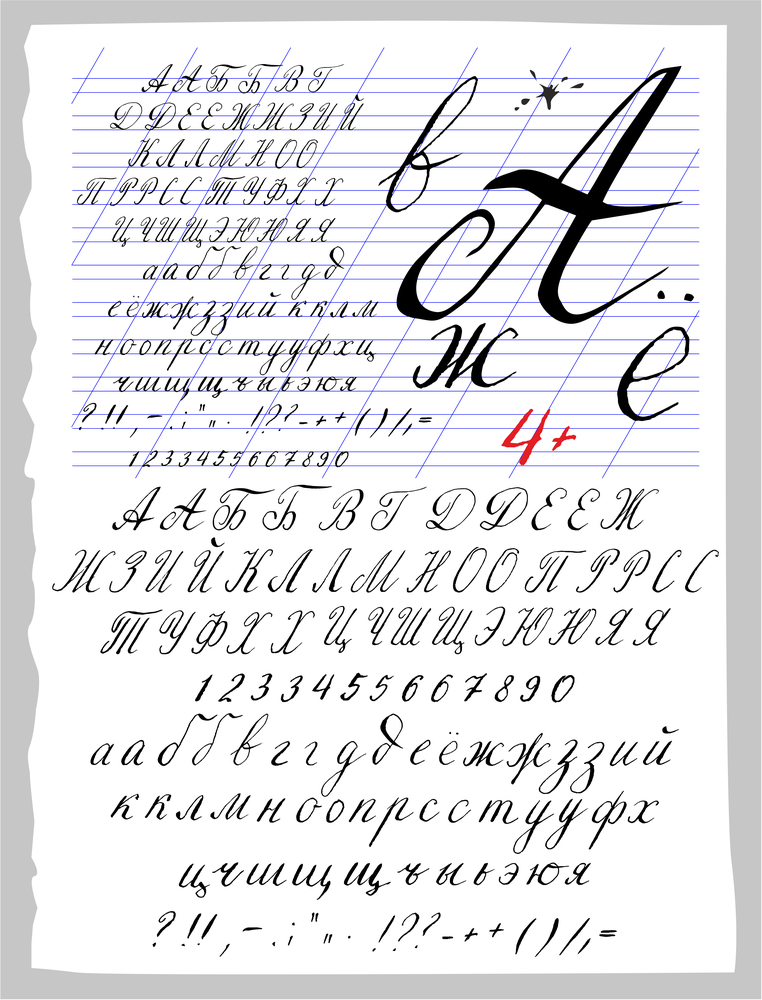 А А Б Б В Г
Д Д Е Е Ж Ж З И Й
К Л Л М Н О О
П Р Р С С Т У Ф Х Х
Ц Ч Ш Щ Э Ю Ю Я Я
а а б б в г г д д
е ё ж ж з з и й к к л м
н о о п р с с т у у ф х ц
ч ш щ щ ъ ы ь э ю я
? ! ! , – . ; " „ · ! ? ? – + + ( ) / , =
1 2 3 3 4 5 5 6 6 7 8 9 0
в
А ..
ж
е
4+
А А Б Б В Г Д Д Е Е Ж
Ж З И Й К Л Л М Н О О П Р Р С С
Т У Ф Х Х Ц Ч Ш Щ Э Ю Ю Я Я
1 2 3 3 4 5 5 6 6 7 8 9 0
а а б б в г г д д е ё ж ж з з и й
к к л м н о о п р с с т у у ф х
ц ч ш щ щ ъ ы ь э ю я
? ! ! , – . ; " „ · ! ? ? – + + ( ) / , =